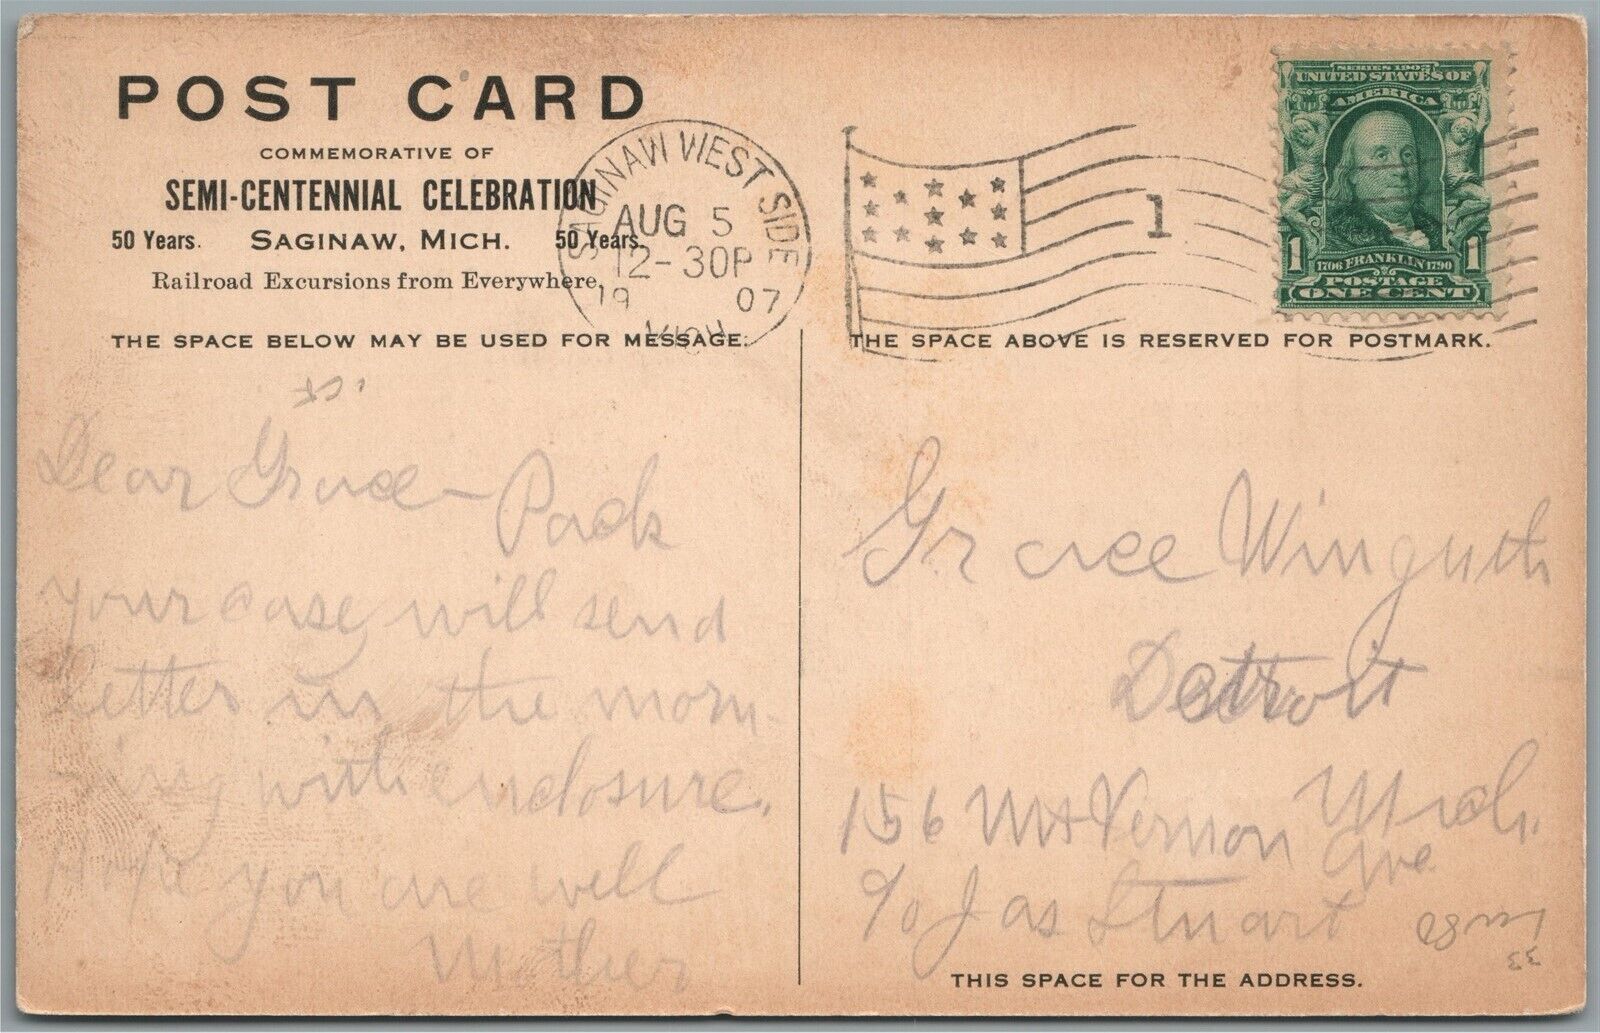 POST CARD
COMMEMORATIVE OF
SEMI-CENTENNIAL CELEBRATION
50 Years. SAGINAW, MICH. 50 Years.
Railroad Excursions from Everywhere.
THE SPACE BELOW MAY BE USED FOR MESSAGE.
SAGINAW WEST SIDE
AUG 5
12-30P
19 07
MICH
1
SERIES 1902
UNITED STATES OF
AMERICA
1 1
1706 FRANKLIN 1790
POSTAGE
ONE CENT
THE SPACE ABOVE IS RESERVED FOR POSTMARK.
Dear Grace – Pack
your case, will send
letter in the morn-
ing with enclosure.
Hope you are well
Mother
Grace Winguth
Detroit
Mich.
156 Mt Vernon Ave
c/o Jas Stuart
THIS SPACE FOR THE ADDRESS.